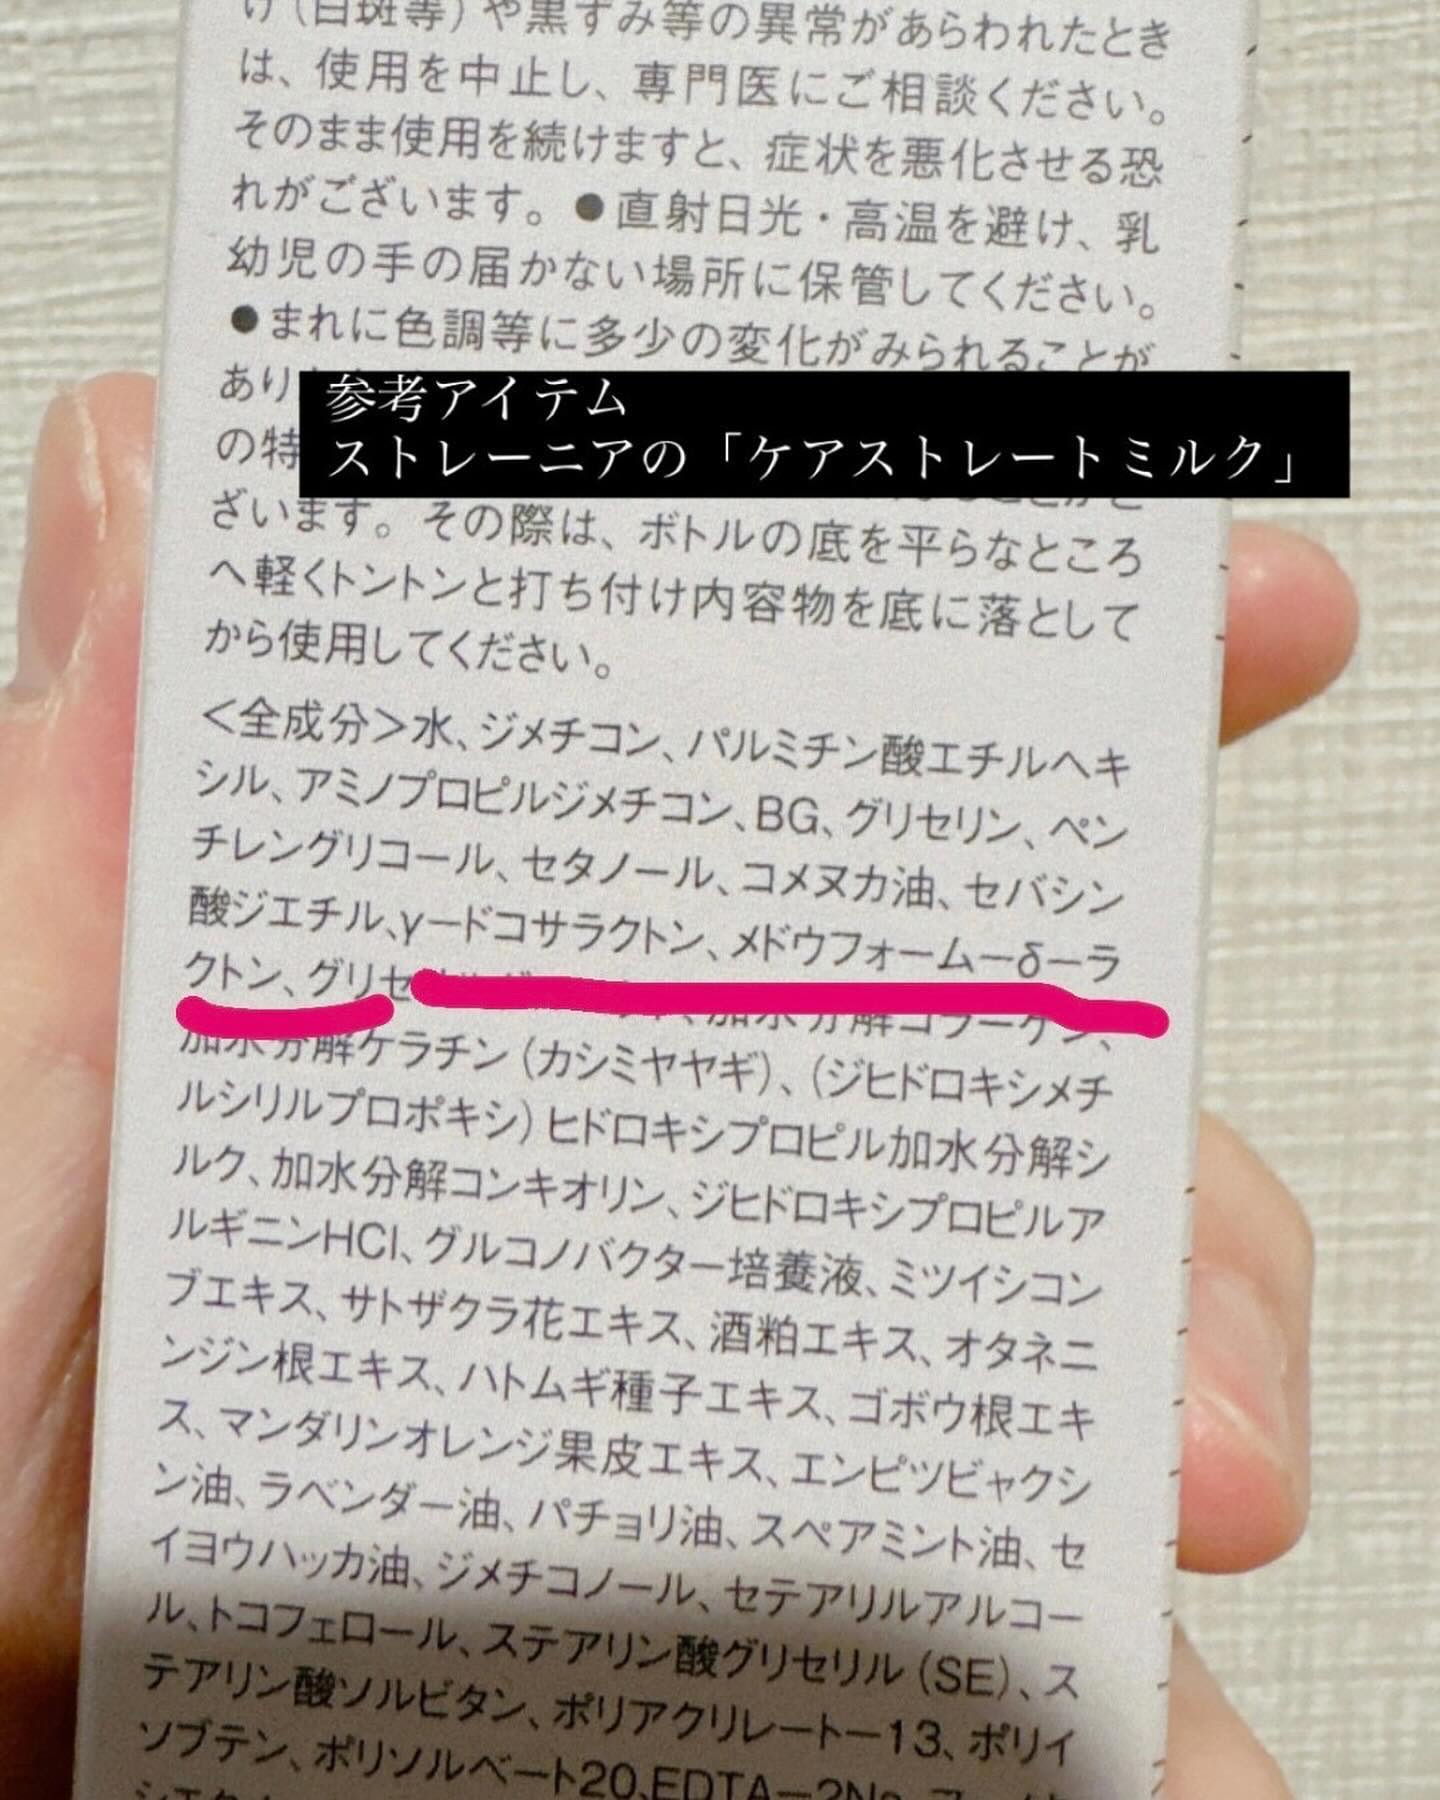 け（白斑等）や黒ずみ等の異常があらわれたとき
は、使用を中止し、専門医にご相談ください。
そのまま使用を続けますと、症状を悪化させる恐
れがございます。●直射日光・高温を避け、乳
幼児の手の届かない場所に保管してください。
●まれに色調等に多少の変化がみられることが
あり
参考アイテム
の特
ストレーニアの「ケアストレートミルク」
ざいます。その際は、ボトルの底を平らなところ
へ軽くトントンと打ち付け内容物を底に落として
から使用してください。
＜全成分＞水、ジメチコン、パルミチン酸エチルヘキ
シル、アミノプロピルジメチコン、BG、グリセリン、ペン
チレングリコール、セタノール、コメヌカ油、セバシン
酸ジエチル、γードコサラクトン、メドウフォームーδーラ
クトン、グリセ
加水分解コラーゲン、
加水分解ケラチン（カシミヤヤギ）、（ジヒドロキシメチ
ルシリルプロポキシ）ヒドロキシプロピル加水分解シ
ルク、加水分解コンキオリン、ジヒドロキシプロピルア
ルギニンHCl、グルコノバクター培養液、ミツイシコン
ブエキス、サトザクラ花エキス、酒粕エキス、オタネニ
ンジン根エキス、ハトムギ種子エキス、ゴボウ根エキ
ス、マンダリンオレンジ果皮エキス、エンピツビャクシ
ン油、ラベンダー油、パチョリ油、スペアミント油、セ
イヨウハッカ油、ジメチコノール、セテアリルアルコー
ル、トコフェロール、ステアリン酸グリセリル（SE）、ス
テアリン酸ソルビタン、ポリアクリレートー13、ポリイ
ソブテン、ポリソルベート20、EDTAー2Na、